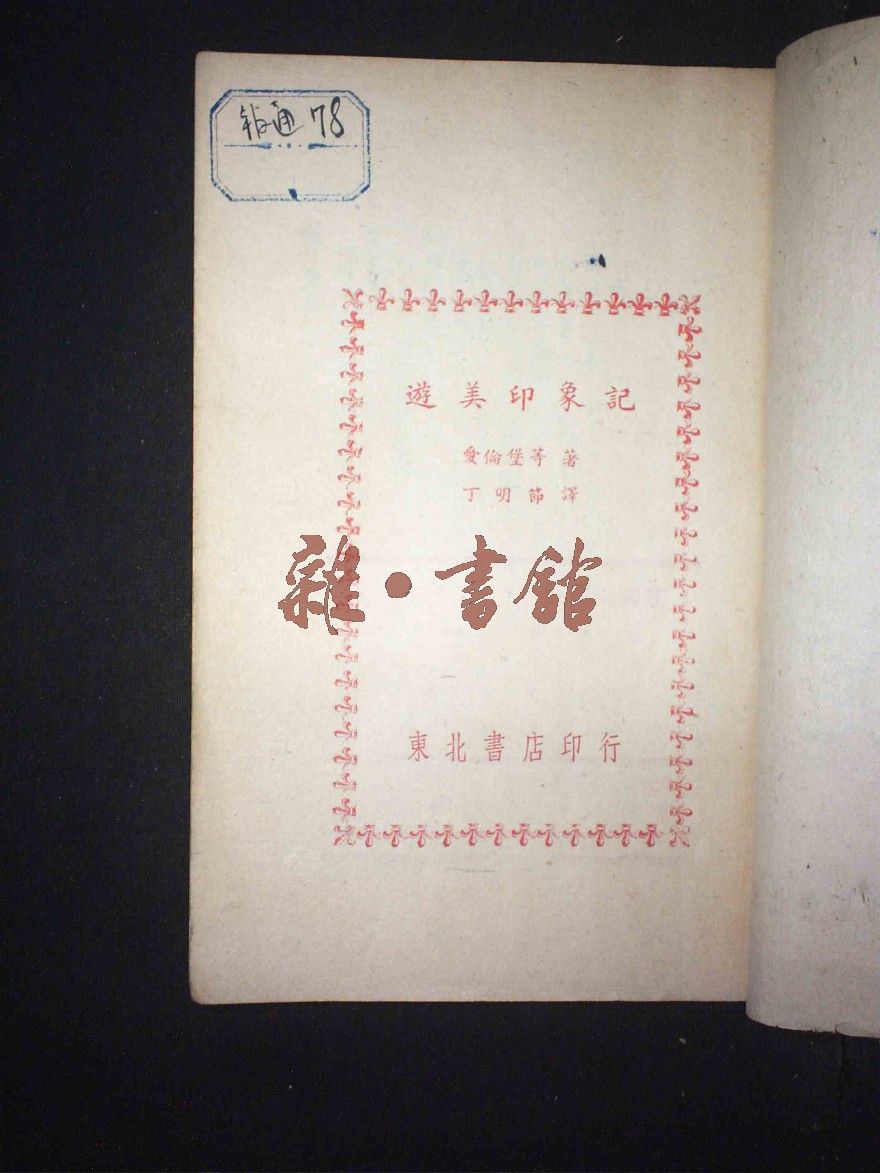 报通 78
遊美印象記
愛倫堡等 著
丁明節 譯
雜·書館
東北書店印行